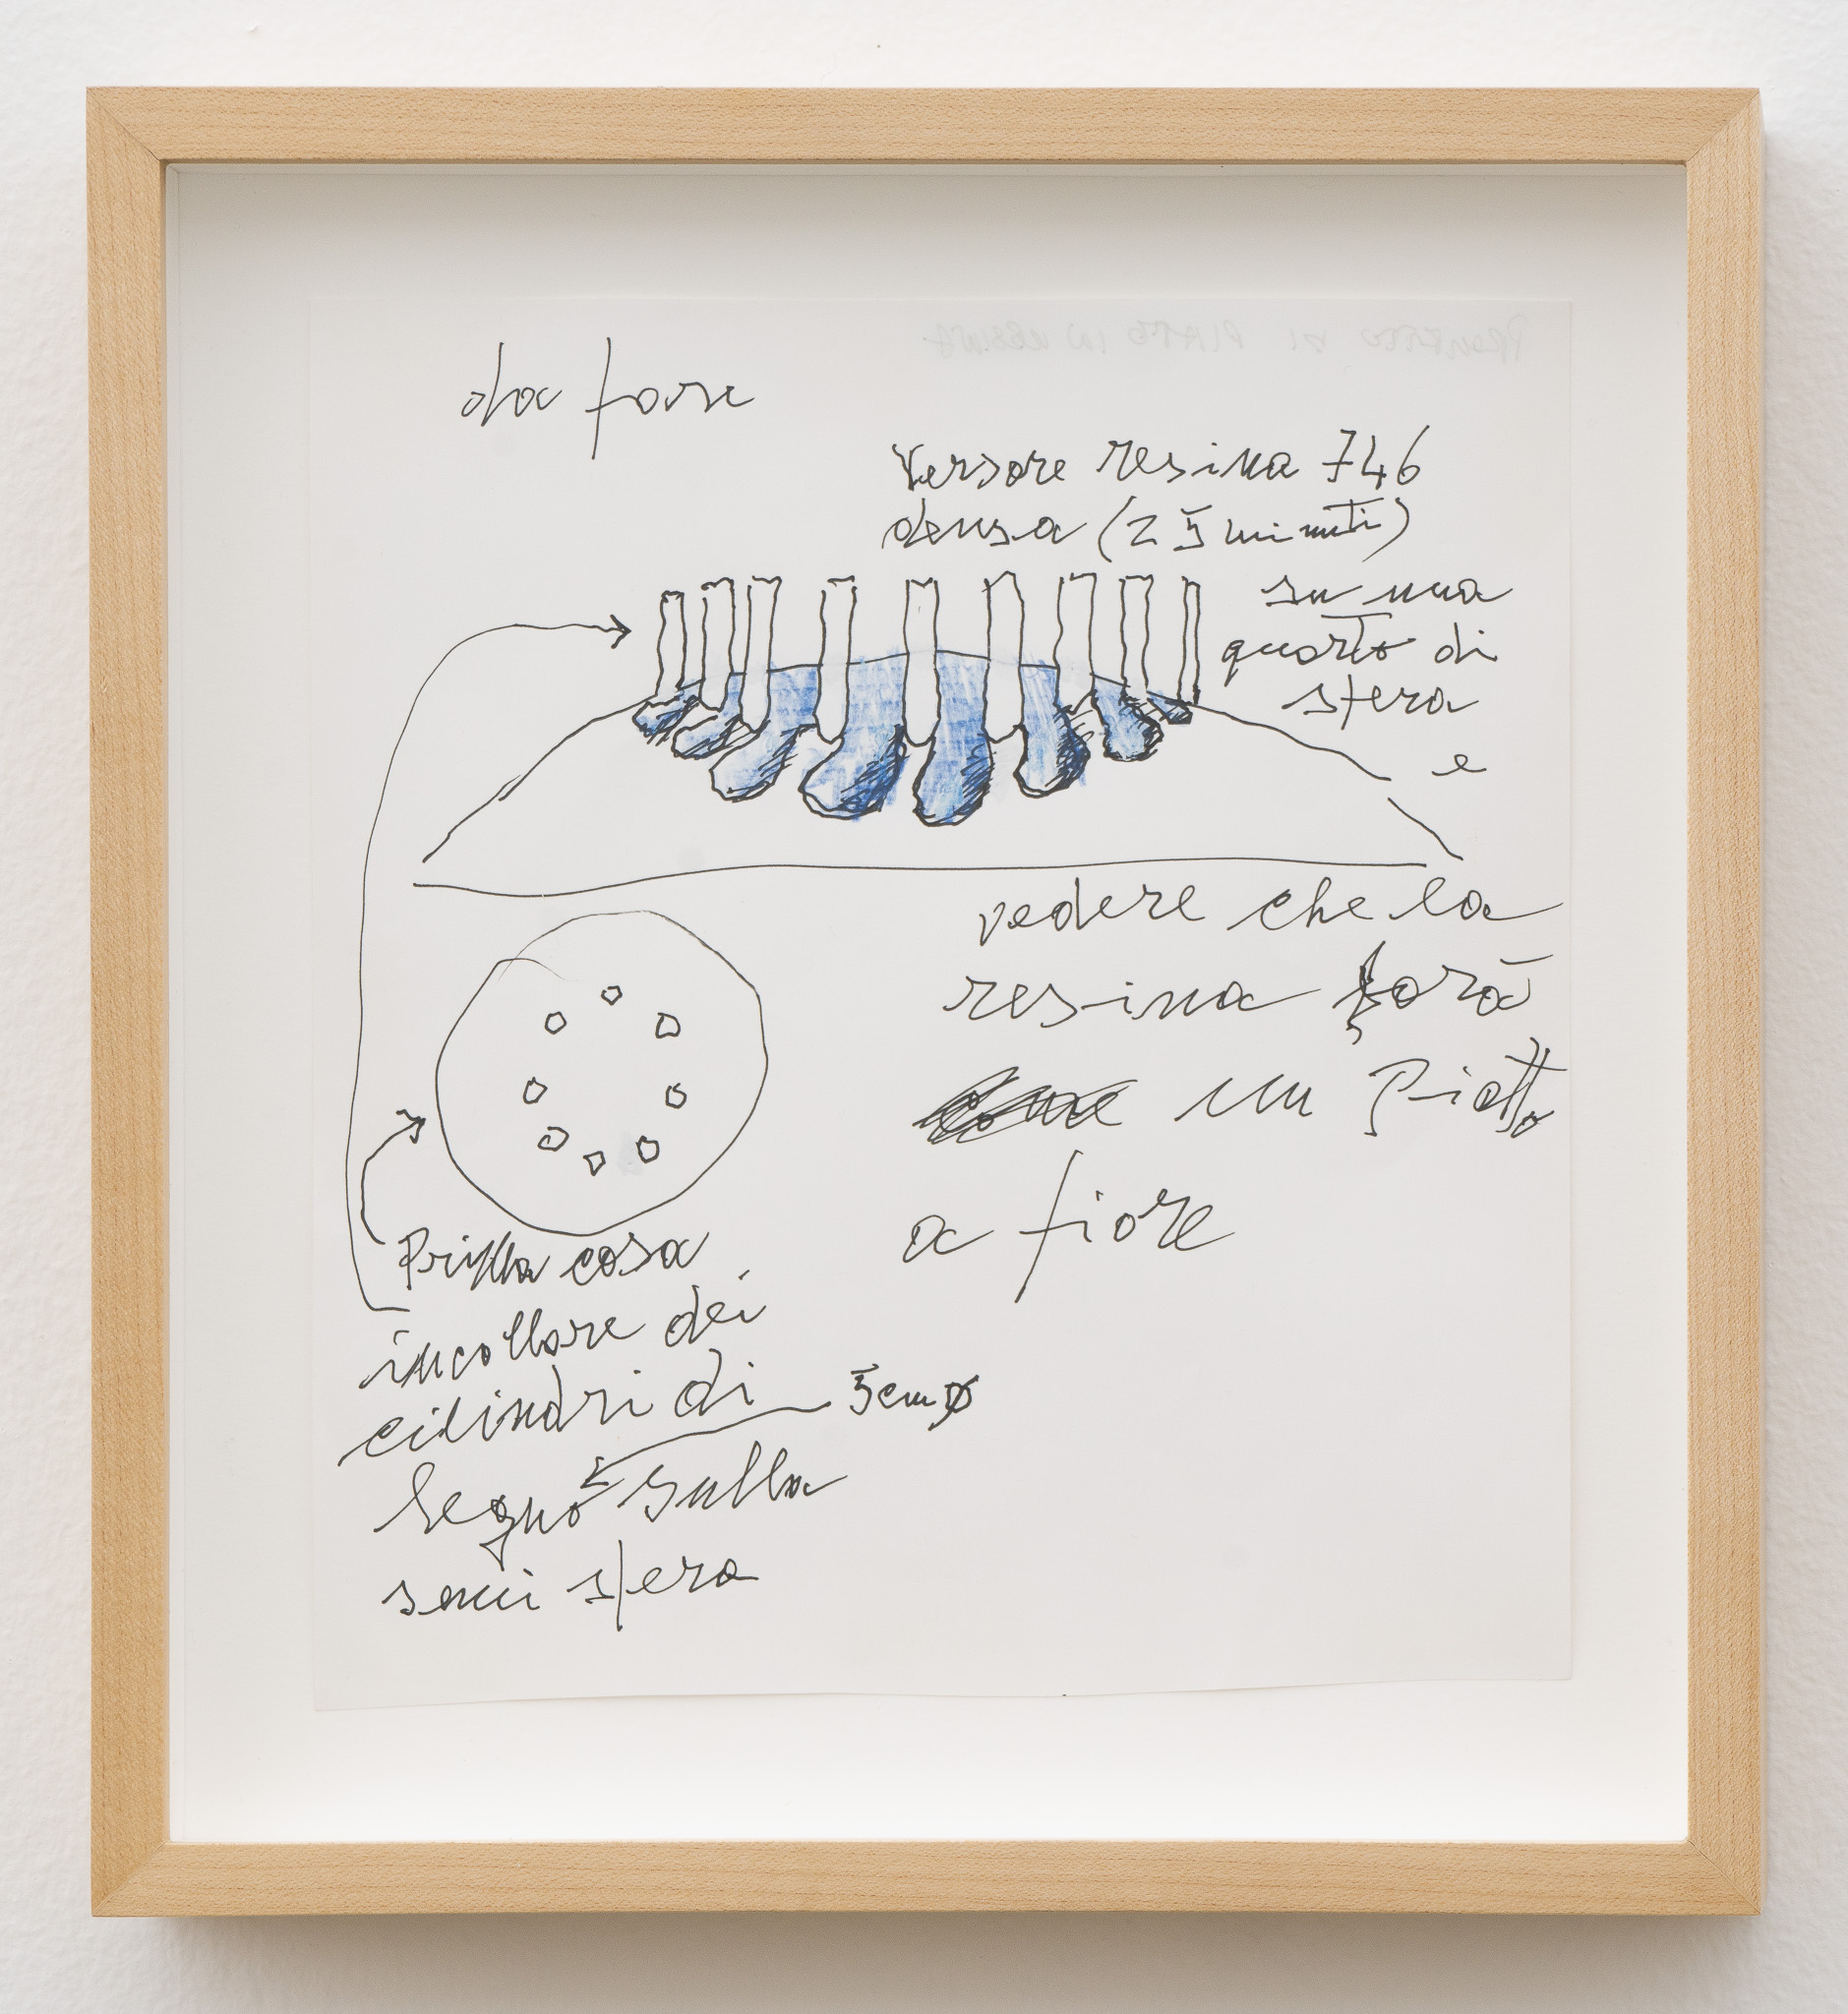 da fare
Versare resina 746
densa (25 minuti)
su una
quarto di
sfera
e
vedere che la
resina farà
come un Piatto
a fiore
Prima cosa
incollare dei
cilindri di
5cm ø
legno sulla
semi sfera